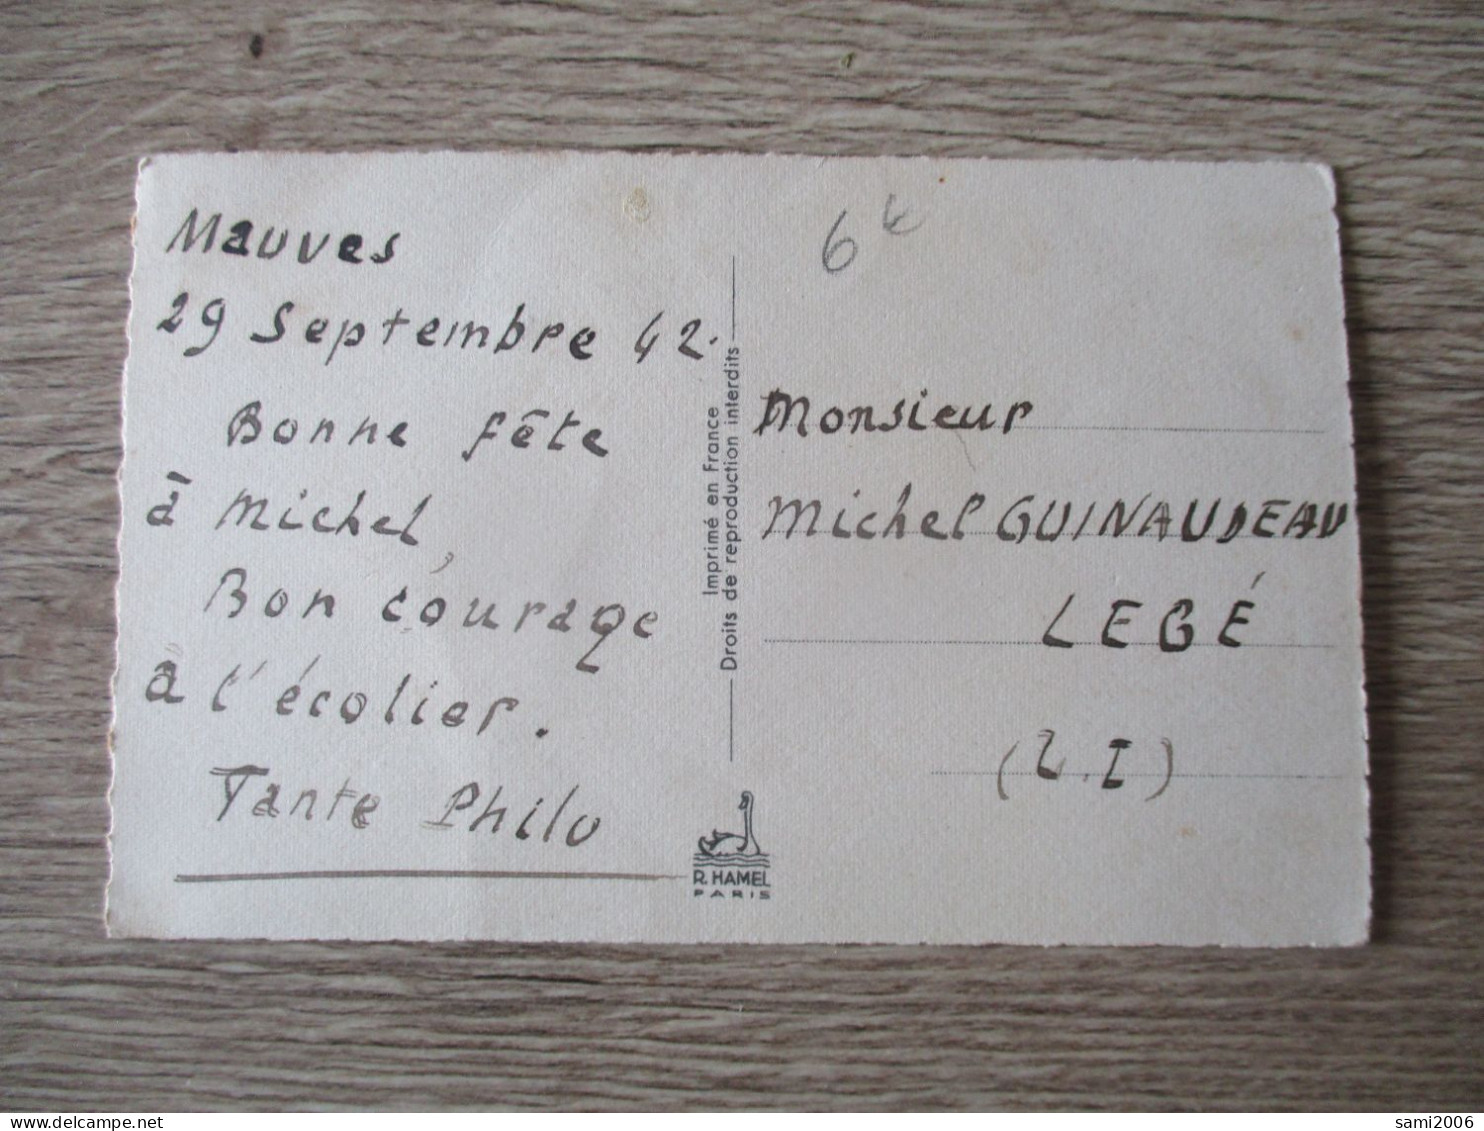 Mauves
29 Septembre 42.
Bonne fête
à Michel,
Bon courage
à l'écolier.
Tante Philo
Imprimé en France
Droits de reproduction interdits
R. HAMEL
PARIS
6€
Monsieur
Michel GUINAUDEAU
LEGÉ
(L.I)
delcampe.net
sami2006